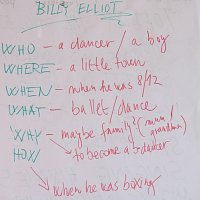 BILLY ELLIOT
WHO - a dancer / a boy
WHERE - a little town
WHEN - when he was 8/12
WHAT - ballet/dance
WHY - maybe family? (mum/grandma)
HOW to become a b-dancer
when he was boxing